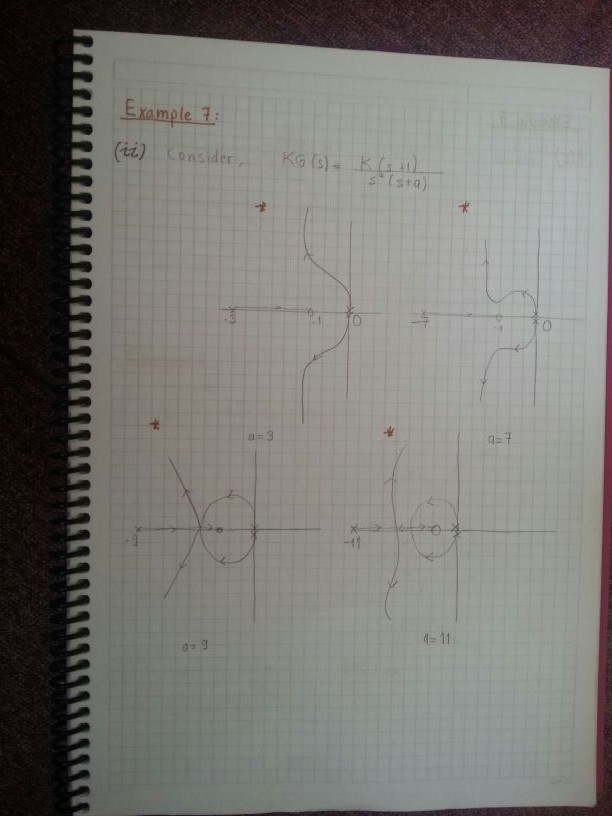 Example 7:
(ii) Consider, KG(s) = K(s+1) / s²(s+a)
* *
-3 -1 0 -7 -1 0
* a=3 * a=7
-9 -11
a=9 a=11